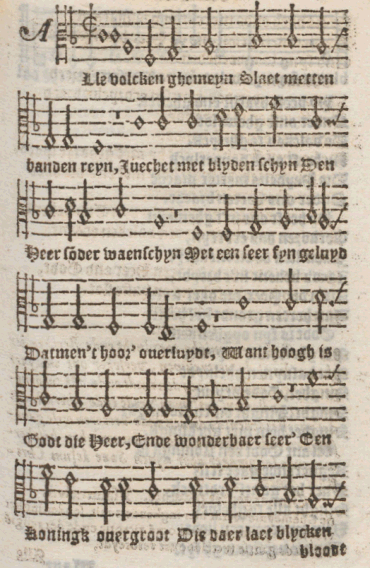 Alle volcken ghemeyn Slaet metten
handen reyn, Juechet met blyden schyn Den
Heer söder waenschyn Met een seer fyn geluyd
Datmen't hoor' overluydt, Want hoogh is
Godt die Heer, Ende wonderbaer seer' Een
Koningk overgroot Dis daer laet blycken
bloodt